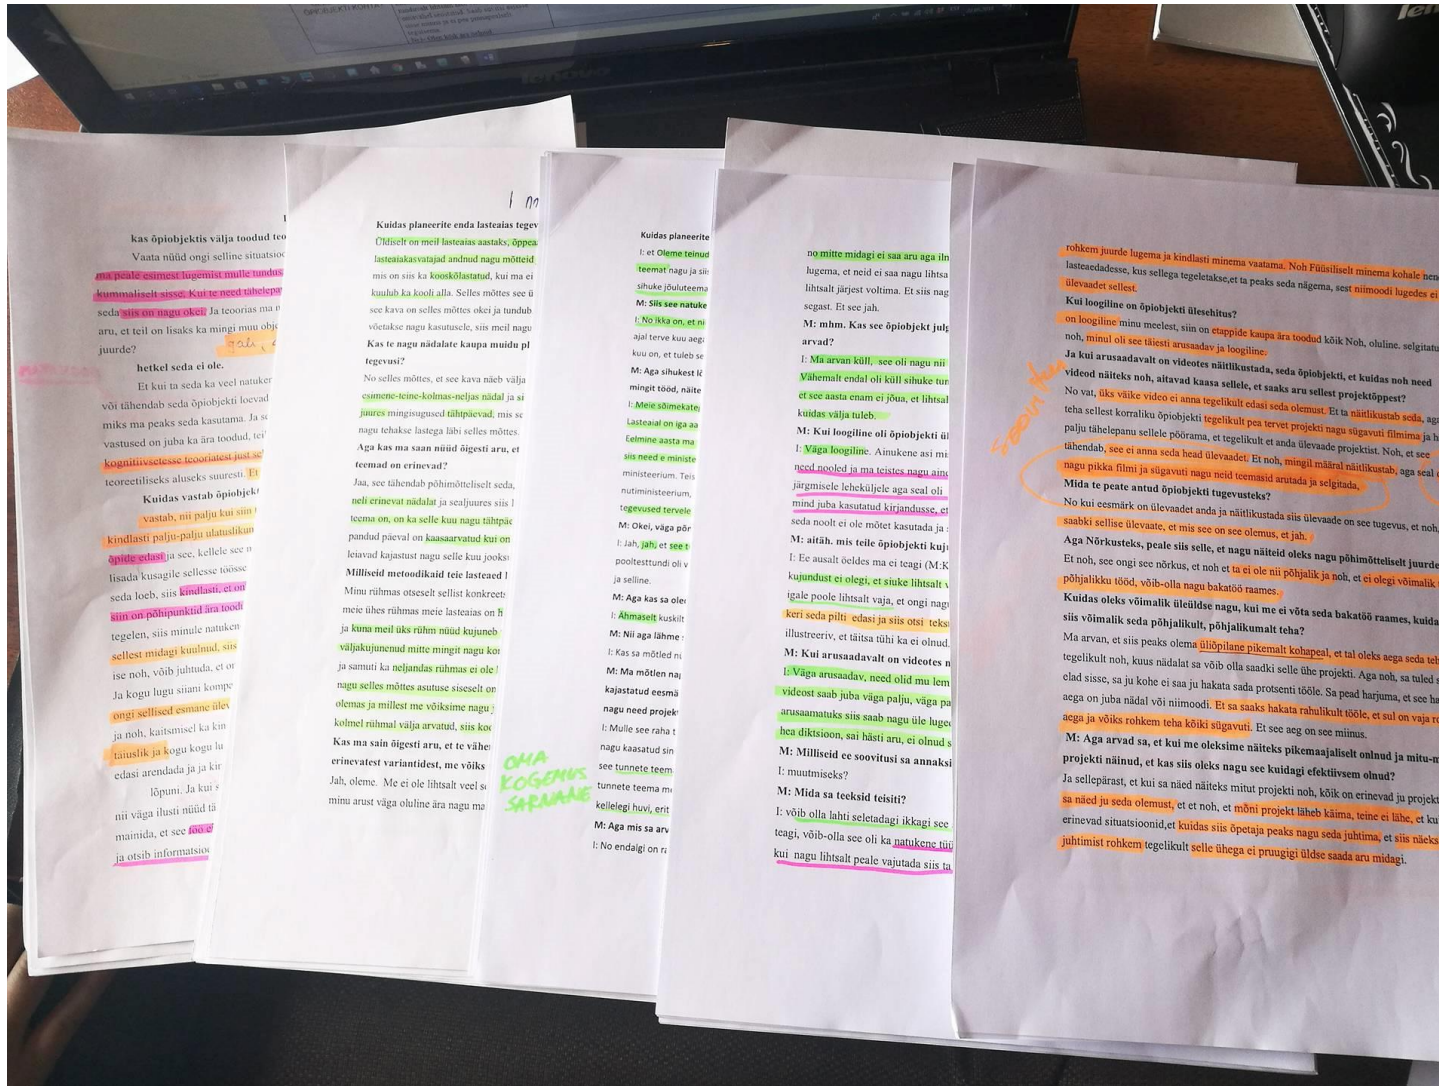 ÕPIOBJEKTI KONTA
lenovo
kas õpiobjektis välja toodud teo
Vaata nüüd ongi selline situatsioo
ma peale esimest lugemist mulle tundus
kummaliselt sisse. Kui te need tähelepa
seda siis on nagu okei. Ja teoorias ma n
aru, et teil on lisaks ka mingi muu obje
juurde?
hetkel seda ei ole.
Et kui ta seda ka veel natuker
või tähendab seda õpiobjekti loevad
miks ma peaks seda kasutama. Ja se
vastused on juba ka ära toodud, tei
kognitiivsetesse teooriatest just se
teoreetiliseks aluseks suuresti. Et
Kuidas vastab õpiobjekt
vastab, nii palju kui siin
kindlasti palju-palju ulatuslikun
õpide edasi ja see, kellele see n
lisada kusagile sellesse töösse
seda loeb, siis kindlasti, et on
siin on põhipunktid ära toodi
tegelen, siis minule natuken
sellest midagi kuulnud, siis
ise noh, võib juhtuda, et or
Ja kogu lugu siiani kompe
ongi sellised esmane ülev
ja noh, kaitsmisel ka kin
täiuslik ja kogu kogu lu
edasi arendada ja ja kir
lõpuni. Ja kui s
nii väga ilusti nüüd tä
mainida, et see töö e
ja otsib informatsioo
Kuidas planeerite enda lasteaias tegev
Üldiselt on meil lasteaias aastaks, õppea
lasteaiakasvatajad andnud nagu mõtteid
mis on siis ka kooskõlastatud, kui ma ei
kuulub ka kooli alla. Selles mõttes see ü
see kava on selles mõttes okei ja tundub
võetakse nagu kasutusele, siis meil nagu
Kas te nagu nädalate kaupa muidu pl
tegevusi?
No selles mõttes, et see kava näeb välja
esimene-teine-kolmas-neljas nädal ja si
juures mingisugused tähtpäevad, mis se
nagu tehakse lastega läbi selles mõttes.
Aga kas ma saan nüüd õigesti aru, et
teemad on erinevad?
Jaa, see tähendab põhimõtteliselt seda,
neli erinevat nädalat ja sealjuures siis l
teema on, on ka selle kuu nagu tähtpäe
pandud päeval on kaasaarvatud kui on
leiavad kajastust nagu selle kuu jooksu
Milliseid metoodikaid teie lasteaed l
Minu rühmas otseselt sellist konkreets
meie ühes rühmas meie lasteaias on h
ja kuna meil üks rühm nüüd kujuneb
väljakujunenud mitte mingit nagu kor
ja samuti ka neljandas rühmas ei ole l
nagu selles mõttes asutuse siseselt on
olemas ja millest me võiksime nagu j
kolmel rühmal välja arvatud, siis koo
Kas ma sain õigesti aru, et te vähe
erinevatest variantidest, me võiks
Jah, oleme. Me ei ole lihtsalt veel se
minu arust väga oluline ära nagu ma
Kuidas planeerite
I: et Oleme teinud
teemat nagu ja siis
sihuke jõuluteema
M: Siis see natuke
I: No ikka on, et ni
ajal terve kuu aega
kuu on, et tuleb se
M: Aga sihukest lõ
mingit tööd, näite
I: Meie sõimekate
Lasteaial on iga aa
Eelmine aasta ma
siis need e ministe
ministeerium. Teis
nutiministeerium,
tegevused tervele
M: Okei, väga põr
I: Jah, jah, et see t
pooltesttundi oli v
ja selline.
M: Aga kas sa oled
I: Ähmaselt kuskilt
M: Nii aga lähme
I: Kas sa mõtled nü
M: Ma mõtlen nag
kajastatud eesmä
nagu need projek
I: Mulle see raha t
nagu kaasatud sin
see tunnete teem
tunnete teema me
kellelegi huvi, erit
M: Aga mis sa arv
I: No endalgi on ra
OMA
KOGEMUS
SARNANE
no mitte midagi ei saa aru aga iln
lugema, et neid ei saa nagu lihtsa
lihtsalt järjest voltima. Et siis nag
segast. Et see jah.
M: mhm. Kas see õpiobjekt julg
arvad?
I: Ma arvan küll, see oli nagu nii
Vähemalt endal oli küll sihuke tun
et see aasta enam ei jõua, et lihtsal
kuidas välja tuleb.
M: Kui loogiline oli õpiobjekti ül
I: Väga loogiline. Ainukene asi mi
need nooled ja ma teistes nagu aino
järgmisele leheküljele aga seal oli
mind juba kasutatud kirjandusse, et
seda noolt ei ole mõtet kasutada ja s
M: aitäh. mis teile õpiobjekti kuju
I: Ee ausalt öeldes ma ei teagi (M:K
kujundust ei olegi, et siuke lihtsalt v
igale poole lihtsalt vaja, et ongi nagu
keri seda pilti edasi ja siis otsi teks
illustreeriv, et täitsa tühi ka ei olnud.
M: Kui arusaadavalt on videotes n
I: Väga arusaadav, need olid mu lem
videost saab juba väga palju, väga pa
arusaamatuks siis saab nagu üle luge
hea diktsioon, sai hästi aru, ei olnud s
M: Milliseid ee soovitusi sa annaksi
I: muutmiseks?
M: Mida sa teeksid teisiti?
I: võib olla lahti seletadagi ikkagi see
teagi, võib-olla see oli ka natukene tüü
kui nagu lihtsalt peale vajutada siis ta
rohkem juurde lugema ja kindlasti minema vaatama. Noh Füüsiliselt minema kohale nen
lasteaedadesse, kus sellega tegeletakse,et ta peaks seda nägema, sest niimoodi lugedes ei
ülevaadet sellest.
Kui loogiline on õpiobjekti ülesehitus?
on loogiline minu meelest, siin on etappide kaupa ära toodud kõik Noh, oluline. selgitatu
noh, minul oli see täiesti arusaadav ja loogiline.
Ja kui arusaadavalt on videotes näitlikustada, seda õpiobjekti, et kuidas noh need
videod näiteks noh, aitavad kaasa sellele, et saaks aru sellest projektõppest?
No vat, üks väike video ei anna tegelikult edasi seda olemust. Et ta näitlikustab seda, aga
teha sellest korraliku õpiobjekti tegelikult pea tervet projekti nagu sügavuti filmima ja h
palju tähelepanu sellele pöörama, et tegelikult et anda ülevaade projektist. Noh, et see
tähendab, see ei anna seda head ülevaadet. Et noh, mingil määral näitlikustab, aga seal
nagu pikka filmi ja sügavuti nagu neid teemasid arutada ja selgitada,
Mida te peate antud õpiobjekti tugevusteks?
No kui eesmärk on ülevaadet anda ja näitlikustada siis ülevaade on see tugevus, et noh,
saabki sellise ülevaate, et mis see on see olemus, et jah.
Aga Nõrkusteks, peale siis selle, et nagu näiteid oleks nagu põhimõtteliselt juurde
Et noh, see ongi see nõrkus, et noh et ta ei ole nii põhjalik ja noh, et ei olegi võimalik
põhjalikku tööd, võib-olla nagu bakatöö raames.
Kuidas oleks võimalik üleüldse nagu, kui me ei võta seda bakatöö raames, kuida
siis võimalik seda põhjalikult, põhjalikumalt teha?
Ma arvan, et siis peaks olema üliõpilane pikemalt kohapeal, et tal oleks aega seda teh
tegelikult noh, kuus nädalat sa võib olla saadki selle ühe projekti. Aga noh, sa tuled s
elad sisse, sa ju kohe ei saa ju hakata sada protsenti tööle. Sa pead harjuma, et see ha
aega on juba nädal või niimoodi. Et sa saaks hakata rahulikult tööle, et sul on vaja ro
aega ja võiks rohkem teha kõiki sügavuti. Et see aeg on see miinus.
M: Aga arvad sa, et kui me oleksime näiteks pikemaajaliselt onlnud ja mitu-m
projekti näinud, et kas siis oleks nagu see kuidagi efektiivsem olnud?
Ja sellepärast, et kui sa näed näiteks mitut projekti noh, kõik on erinevad ju projekt
sa näed ju seda olemust, et et noh, et mõni projekt läheb käima, teine ei lähe, et ku
erinevad situatsioonid,et kuidas siis õpetaja peaks nagu seda juhtima, et siis näeks
juhtimist rohkem tegelikult selle ühega ei pruugigi üldse saada aru midagi.